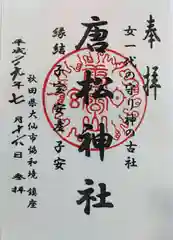 奉拝
女一代の守り神の古社
唐松神社
縁結 子宝 安産 子安
秋田県大仙市協和境鎮座
平成二九年七月十六日 参拝